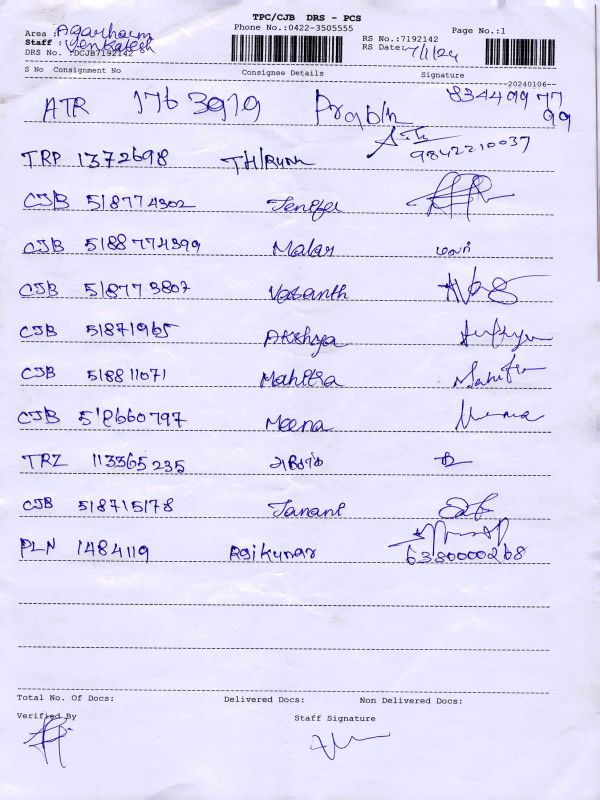 TPC/CJB DRS - PCS
Phone No.:0422-3505555
Page No.:1
Area : Agarharm
Staff : Venkatesh
DRS No. :DCJB7192142
RS No.:7192142
RS Date: 7/1/24
S No Consignment No Consignee Details Signature
20240106
ATR 1763919 Prabhu 8344997799
TRP 1372698 9842210037
CJB 518774302 Jenifer
CJB 5188774399 Malar மலர்
CJB 518773807 Vasanth
CJB 51871965 Akshya
CJB 518811071 Mahitha
CJB 518660797 Meena
TRZ 113365235
CJB 518715178 Janani
PLN 1484119 Rajkumar 6380000268
Total No. Of Docs: Delivered Docs: Non Delivered Docs:
Verified By Staff Signature